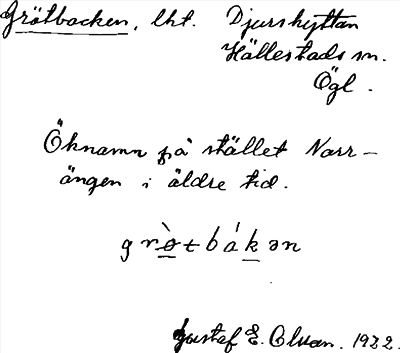 Grötbacken, lht. Djurshyttan
Hällestads sn.
Ögl.
Öknamn på stället Norr-
ängen i äldre tid.
grò̲tbák̲ən
Gustaf E. Olsson. 1932.